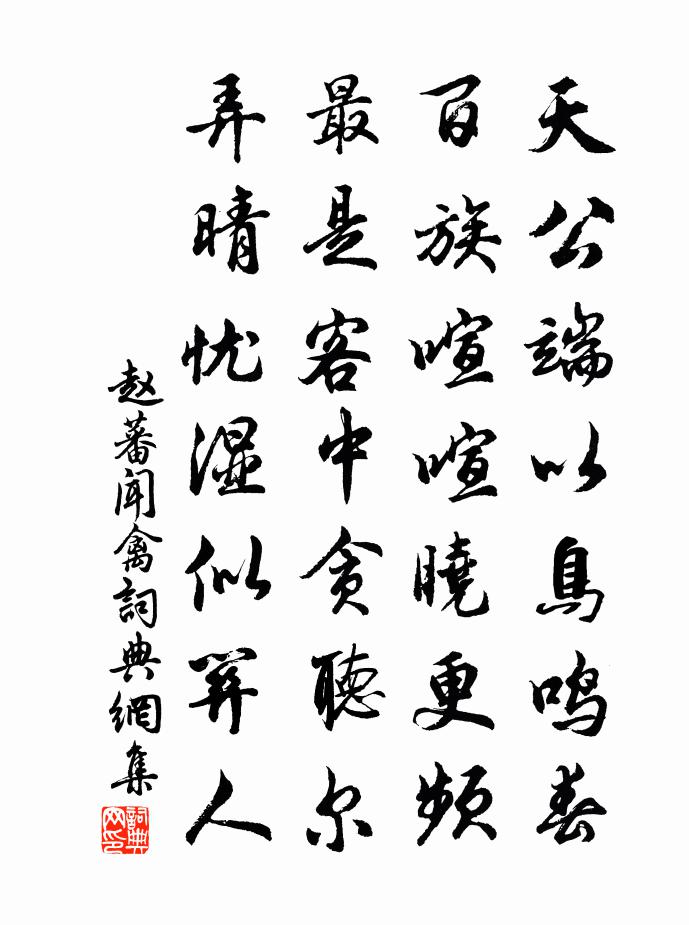 天公端以鳥鸣春
百族喧喧曉更頻
最是客中貪聽尔
弄晴忧湿似關人
赵蕃聞禽詞典網集
詞典网印